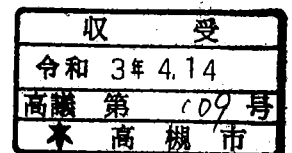 収受
令和 3年 4.14
高議 第 109 号
高槻市